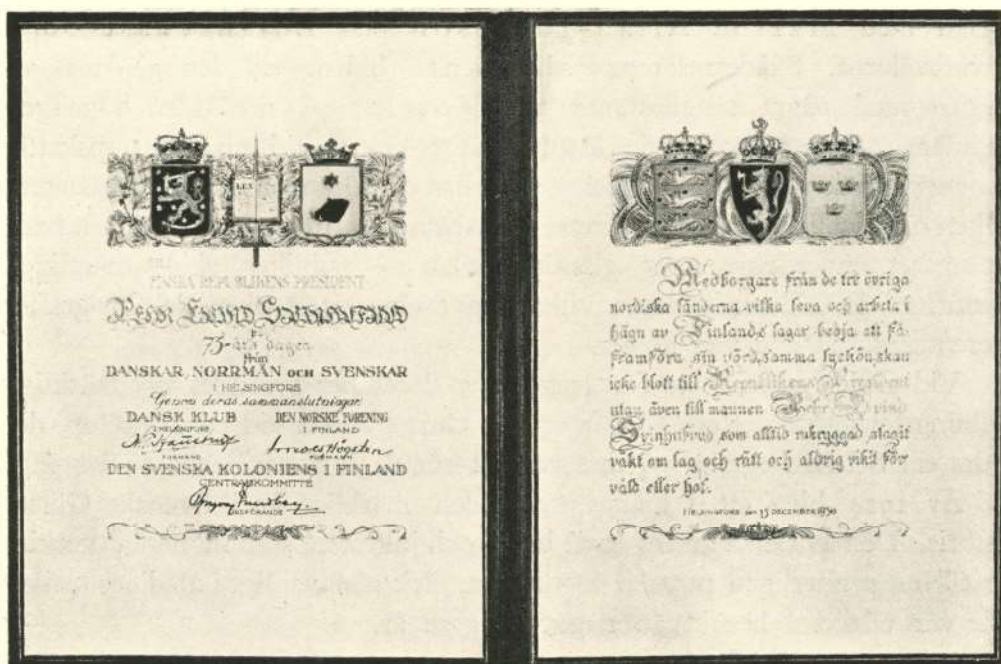 LEX
FINSKA REPUBLIKENS PRESIDENT
PEHR EVIND SVINHUFVUD
PÅ
75-års dagen
från
DANSKAR, NORRMÄN OCH SVENSKAR
I HELSINGFORS
Genom deras sammanslutningar
DANSK KLUB DEN NORSKE FORENING
I HELSINGFORS I FINLAND
FORMAND FORMANN
DEN SVENSKA KOLONIENS I FINLAND
CENTRALKOMMITTÉ
ORDFÖRANDE
Medborgare från de tre övriga
nordiska länderna vilka leva och arbeta i
hägn av Finlands lagar bedja att få
framföra sin vördsamma lyckönskan
icke blott till Republikens President
utan även till mannen Pehr Evind
Svinhufvud som alltid rakryggad slagit
vakt om lag och rätt och aldrig vikit för
våld eller hot.
HELSINGFORS den 15 DECEMBER 1936